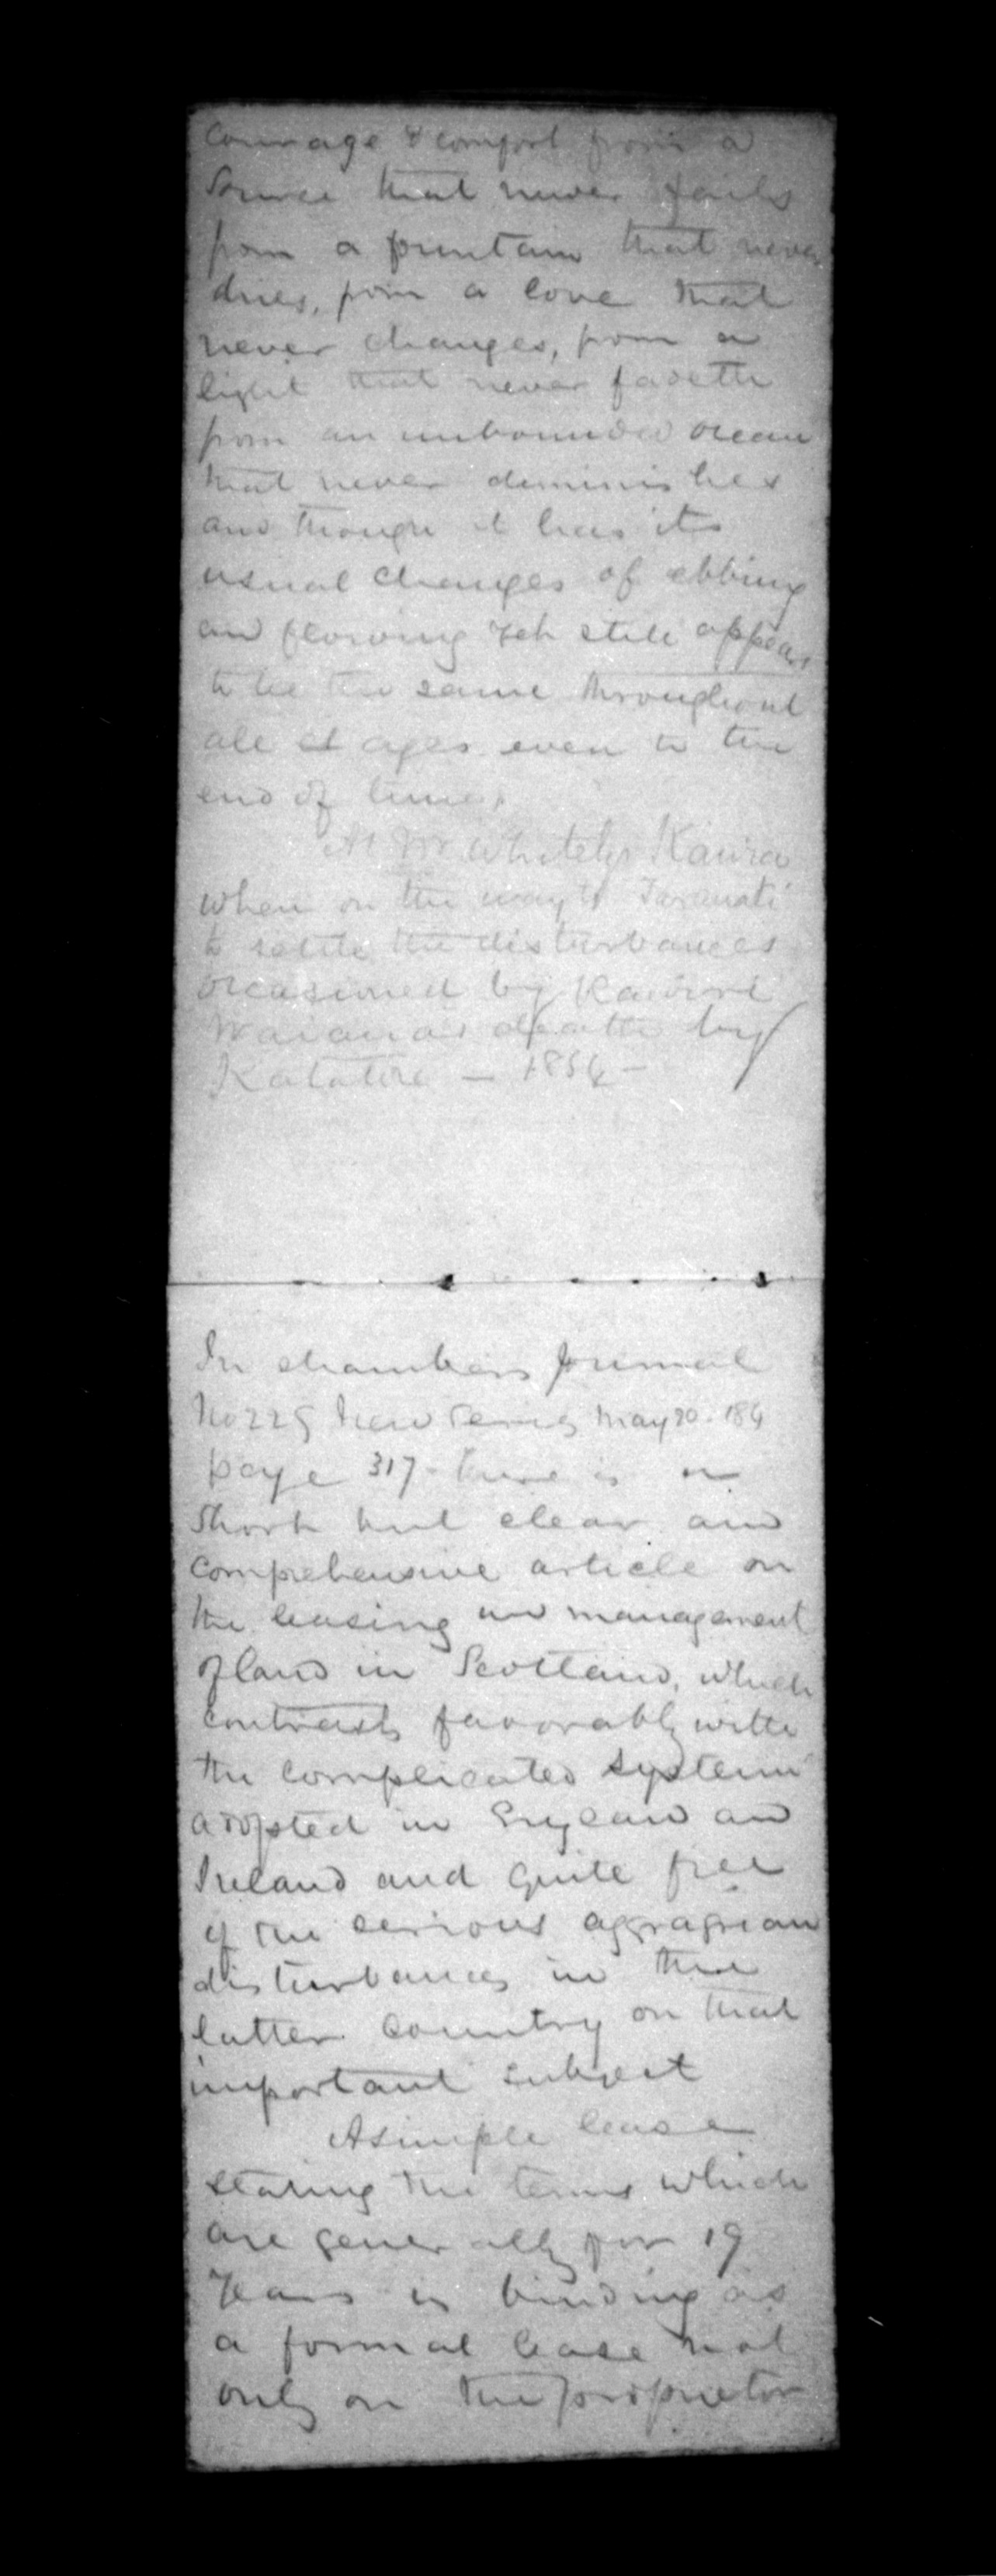 Courage & comfort from a
Source that never fails
from a fountain that never
dries, from a love that
never changes, from a
light that never fadeth
from an unbounded ocean
that never diminishes
and though it has its
usual changes of ebbing
and flowing yet still appears
to be the same throughout
all ages even to the
end of time,
At Mr Whiteley Kawia
when on the way to Taranaki
to settle the disturbances
occasioned by Rawiri
Waiaua's death by
Katatore — 1854 —
In chambers Journal
No 225 New Series May 20. 184
page 317 - there is a
Short but clear and
comprehensive article on
the leasing and management
of land in Scotland, which
contrasts favorably with
the complicated system
adopted in England and
Ireland and quite free
of the serious aggragrian
disturbances in the
latter country on that
important subject
A simple lease
stating the terms which
are generally for 19
Years is binding as
a formal lease not
only on the proprietor